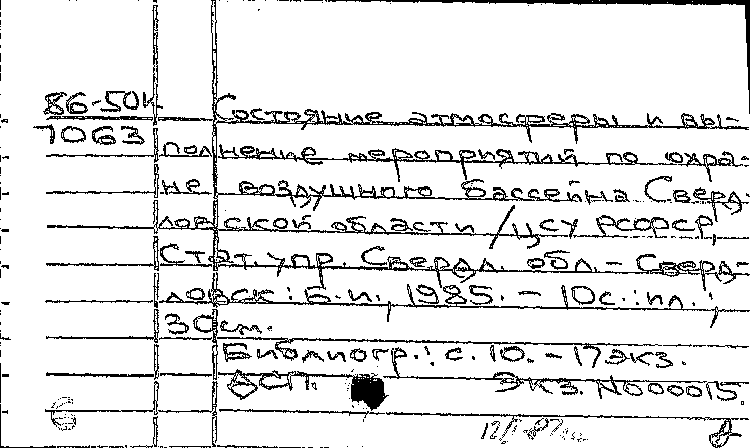 86-50к Состояние атмосферы и вы-
7063 полнение мероприятий по охра-
не воздушного бассейна Сверд-
ловской области / ЦСУ РСФСР,
Стат. упр. Свердл. обл. - Сверд-
ловск : Б.и., 1985. - 10с. : ил. ;
30см.
Библиогр.: с. 10. - 17 экз.
ДСП. Экз. N000015.
6
8